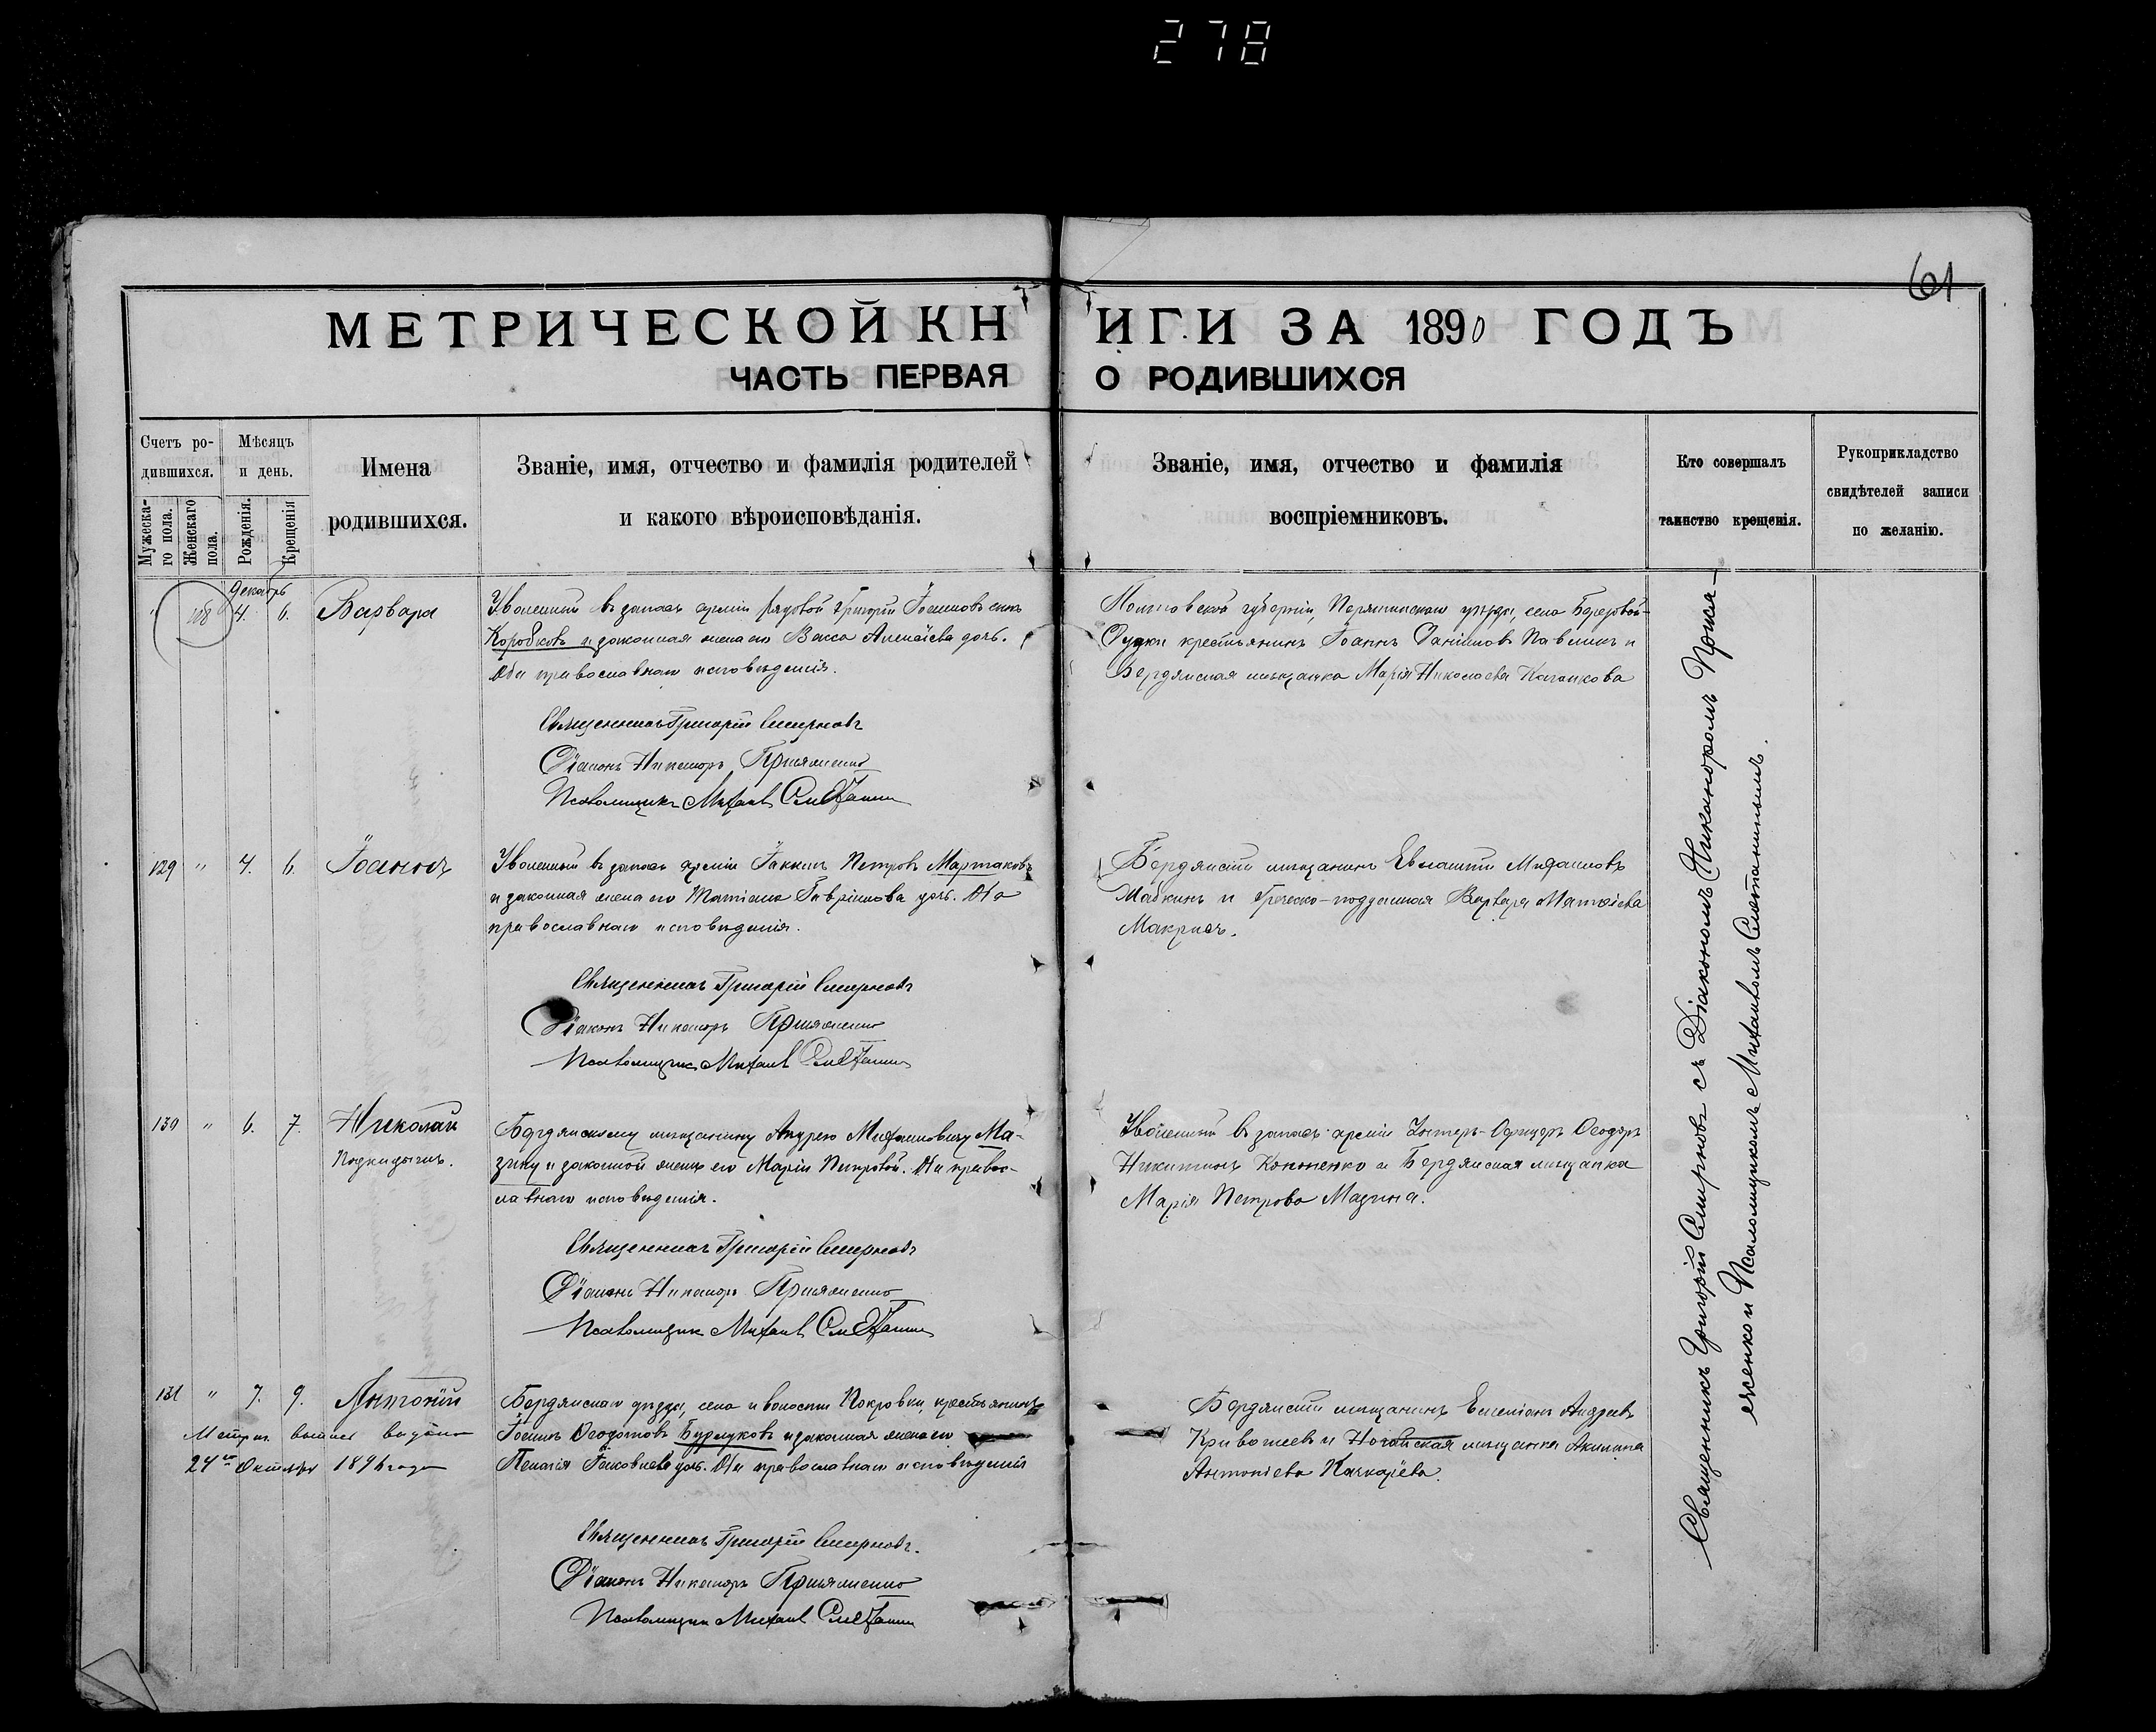 278
61
МЕТРИЧЕСКОЙ КНИГИ ЗА 1890 ГОДЪ
ЧАСТЬ ПЕРВАЯ О РОДИВШИХСЯ
Счетъ ро-
дившихся.
Мужеска-
го пола.
Женскаго
пола.
Мѣсяцъ
и день.
Рожденія.
Крещенія
Имена
родившихся.
Званіе, имя, отчество и фамилія родителей
и какого вѣроисповѣданія.
Званіе, имя, отчество и фамилія
воспріемниковъ.
Кто совершалъ
таинство крещенія.
Рукоприкладство
свидѣтелей записи
по желанію.
Декабрь
" 108 4. 6. Варвара
Уволенный въ запасъ арміи рядовой Григорій Іосифовъ сынъ
Коробковъ и законная жена его Васса Алексіева дочь.
Оба православнаго исповѣданія.
Священникъ Григорій Смирновъ
Діаконъ Никаноръ
Псаломщикъ Михаилъ Сметанинъ
Полтавской губерніи, Пирятинскаго уѣзда, села Березовой-
Рудки крестьянинъ Іоаннъ Даніиловъ Павликъ и
Бердянская мѣщанка Марія Николаева
129 " 4. 6. Іоаннъ
Уволенный въ запасъ арміи Петровъ Мартаковъ
и законная жена его Татіана Гавріилова дочь. Оба
православнаго исповѣданія.
Священникъ Григорій Смирновъ
Діаконъ Никаноръ
Псаломщикъ Михаилъ Сметанинъ
Бердянскій мѣщанинъ Евлампій Михаиловъ
Мабкинъ и Греческо-подданная Варвара Матвіева
Макрисъ.
130 " 6. 7. Николай
Подкидышъ.
Бердянскому мѣщанину Андрею Михаиловичу Ма-
зину и законной женѣ его Маріи Петровой. Оба правос-
лавнаго исповѣданія.
Священникъ Григорій Смирновъ
Діаконъ Никаноръ
Псаломщикъ Михаилъ Сметанинъ
Уволенный въ запасъ арміи Унтеръ-Офицеръ Ѳеодоръ
Никитинъ Кононенко и Бердянская мѣщанка
Марія Петрова Мазина.
131 " 7. 9. Антоній
Метрич. выпись выдана
24го Октября 1896 года
Бердянскаго уѣзда, села и волости Покровки, крестьянинъ
Ѳеодотовъ Бурлуковъ и законная жена его
Пелагія Іаковлева дочь. Оба православнаго исповѣданія
Священникъ Григорій Смирновъ.
Діаконъ Никаноръ
Псаломщикъ Михаилъ Сметанинъ
Бердянскій мѣщанинъ Емеліанъ Андреевъ
Кривошеевъ и Ногайская мѣщанка Акилина
Антоніева
Священникъ Григорій Смирновъ съ Діакономъ Никаноромъ
и Псаломщикомъ Михаиломъ Сметанинымъ.